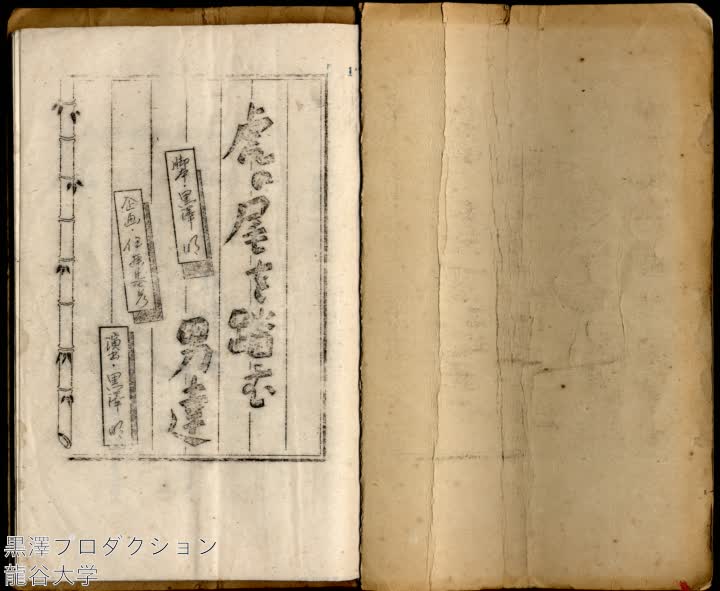 虎の尾を踏む
男達
脚本・黒澤 明
企画・伊藤基彦
演出・黒澤 明
1
黒澤プロダクション
龍谷大学